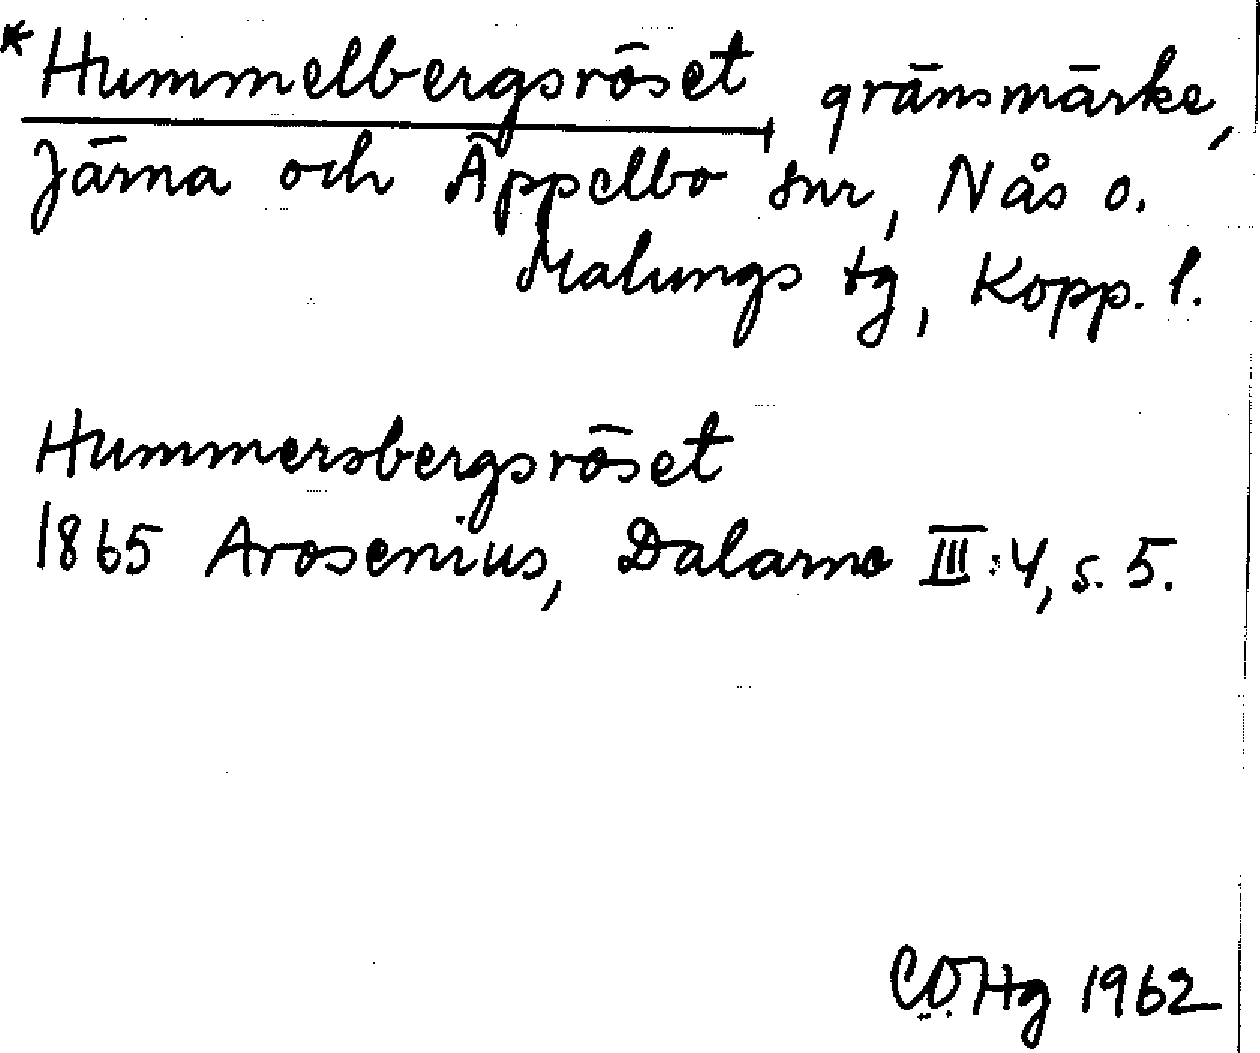 *Hummelbergsröset, gränsmärke,
Järna och Äppelbo snr, Nås o.
Malungs tg, Kopp. l.
Hummersbergsröset
1865 Arosenius, Dalarne III:4, s. 5.
CÖHg 1962